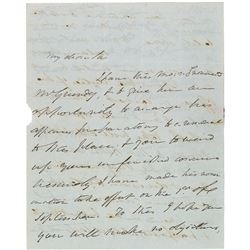 My dear Sir
I have this moment
Mr Grundy & to give him an
opportunity to arrange his
affairs preparatory to a removal
to this place, & you to wind
up your unfinished concerns
I have made his nom
to take effect on the 1st of
September. To this I hope
you will make no objection,